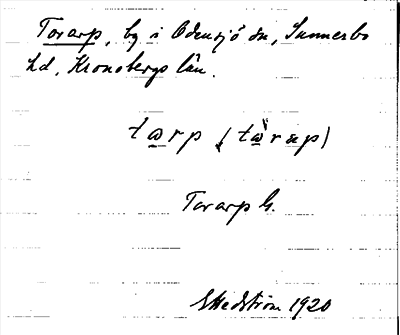 Torarp, by i Odensjö sn, Sunnerbo
hd, Kronobergs län.
tarp (tàrap)
Torarp G.
G Hedström 1920